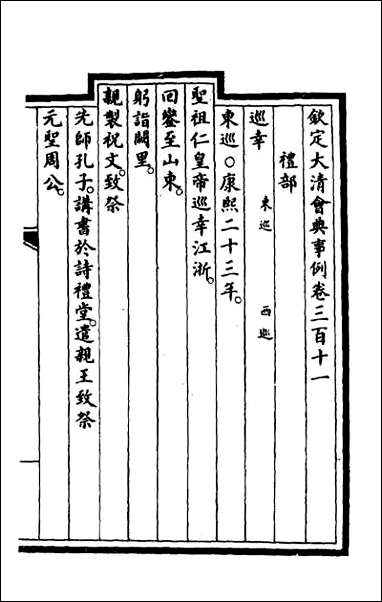 欽定大清會典事例卷三百十一
禮部
巡幸 東巡 西巡
東巡○康熙二十三年。
聖祖仁皇帝巡幸江浙。
回鑾至山東。
躬詣闕里。
親製祝文。致祭
先師孔子。講書於詩禮堂。遣親王致祭
元聖周公。